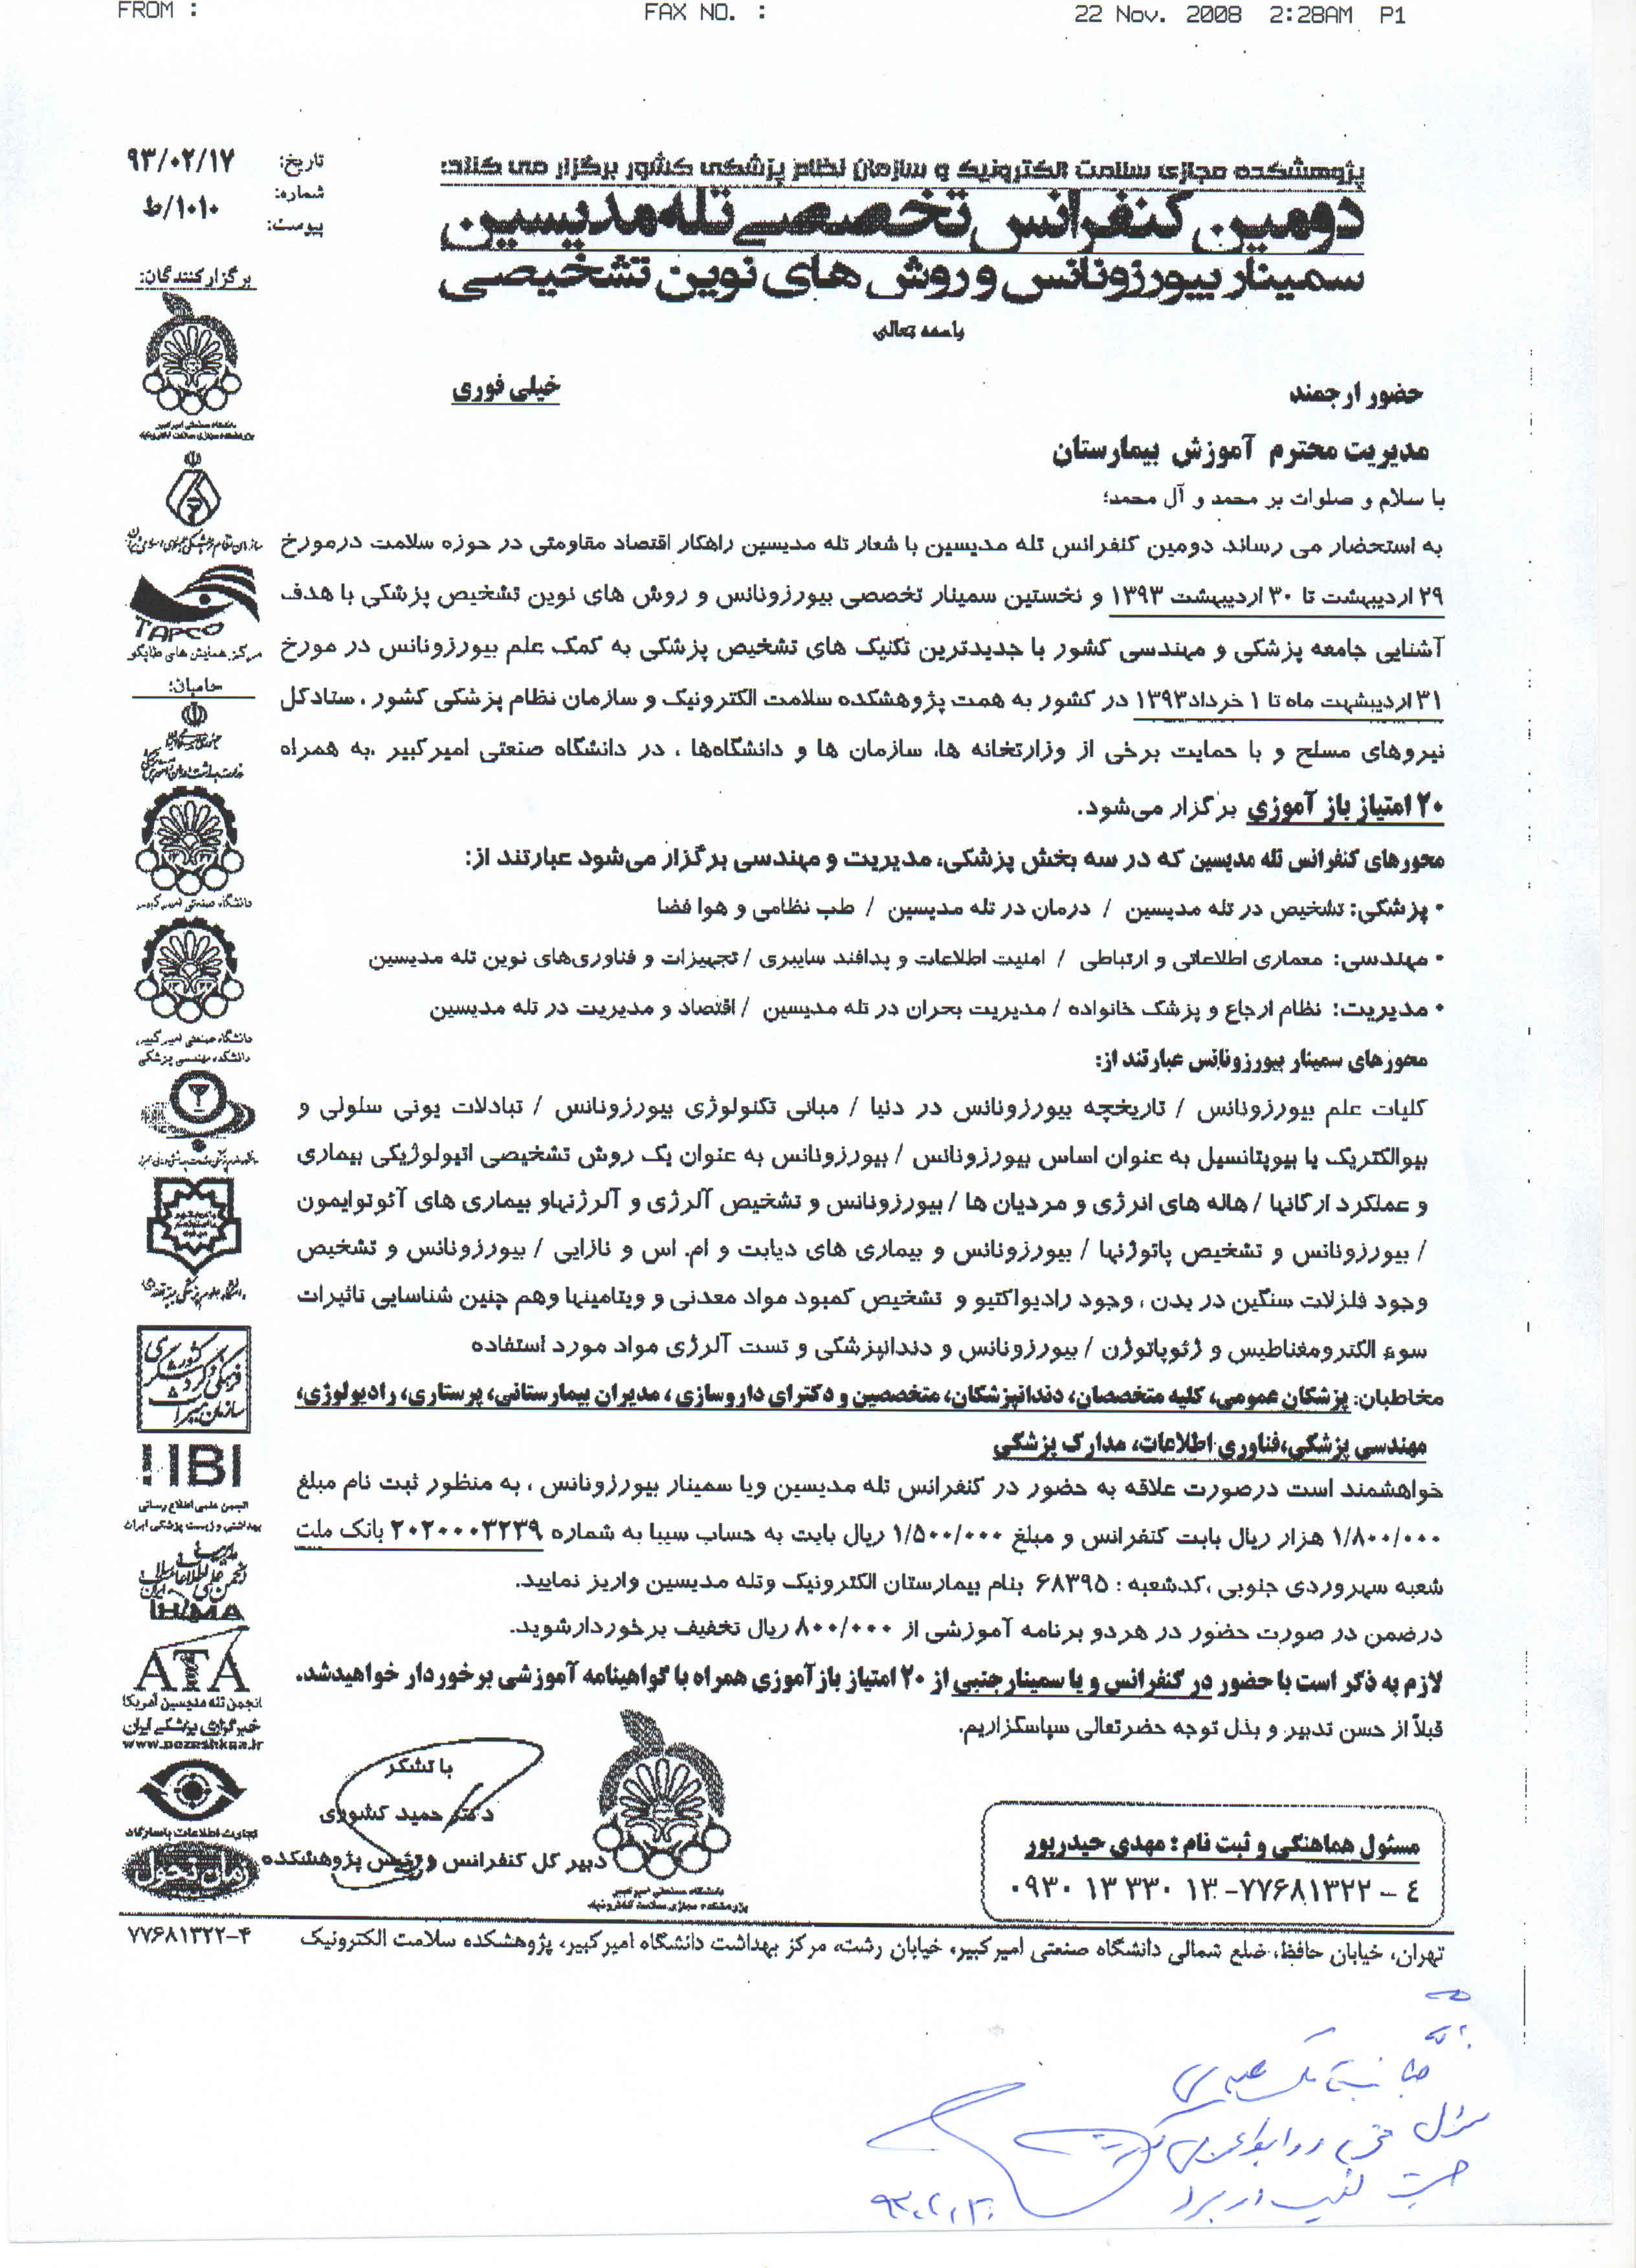 FROM :
FAX NO. :
22 Nov. 2008 2:28AM P1
تاریخ: ۹۳/۰۲/۱۷
شماره: ۱۰۱۰/ط
پیوست:
پژوهشکده مجازی سلامت الکترونیک و سازمان نظام پزشکی کشور برگزار می کنند:
دومین کنفرانس تخصصی تله مدیسین
سمینار بیورزونانس و روش های نوین تشخیصی
باسمه تعالی
حضور ارجمند
خیلی فوری
مدیریت محترم آموزش بیمارستان
با سلام و صلوات بر محمد و آل محمد؛
به استحضار می رساند دومین کنفرانس تله مدیسین با شعار تله مدیسین راهکار اقتصاد مقاومتی در حوزه سلامت درمورخ
۲۹ اردیبهشت تا ۳۰ اردیبهشت ۱۳۹۳ و نخستین سمینار تخصصی بیورزونانس و روش های نوین تشخیص پزشکی با هدف
آشنایی جامعه پزشکی و مهندسی کشور با جدیدترین تکنیک های تشخیص پزشکی به کمک علم بیورزونانس در مورخ
۳۱ اردیبشهت ماه تا ۱ خرداد۱۳۹۳ در کشور به همت پژوهشکده سلامت الکترونیک و سازمان نظام پزشکی کشور ، ستادکل
نیروهای مسلح و با حمایت برخی از وزارتخانه ها، سازمان ها و دانشگاه‌ها ، در دانشگاه صنعتی امیرکبیر ،به همراه
۲۰ امتیاز باز آموزی برگزار می‌شود.
محورهای کنفرانس تله مدیسین که در سه بخش پزشکی، مدیریت و مهندسی برگزار می‌شود عبارتند از:
• پزشکی: تشخیص در تله مدیسین / درمان در تله مدیسین / طب نظامی و هوا فضا
• مهندسی: معماری اطلاعاتی و ارتباطی / امنیت اطلاعات و پدافند سایبری / تجهیزات و فناوری‌های نوین تله مدیسین
• مدیریت: نظام ارجاع و پزشک خانواده / مدیریت بحران در تله مدیسین / اقتصاد و مدیریت در تله مدیسین
محورهای سمینار بیورزونانس عبارتند از:
کلیات علم بیورزونانس / تاریخچه بیورزونانس در دنیا / مبانی تکنولوژی بیورزونانس / تبادلات یونی سلولی و
بیوالکتریک یا بیوپتانسیل به عنوان اساس بیورزونانس / بیورزونانس به عنوان یک روش تشخیصی اتیولوژیکی بیماری
و عملکرد ارگانها / هاله های انرژی و مردیان ها / بیورزونانس و تشخیص آلرژی و آلرژنهاو بیماری های آئوتوایمون
/ بیورزونانس و تشخیص پاتوژنها / بیورزونانس و بیماری های دیابت و ام. اس و نازایی / بیورزونانس و تشخیص
وجود فلزلات سنگین در بدن ، وجود رادیواکتیو و تشخیص کمبود مواد معدنی و ویتامینها وهم چنین شناسایی تاثیرات
سوء الکترومغناطیس و ژئوپاتوژن / بیورزونانس و دندانپزشکی و تست آلرژی مواد مورد استفاده
مخاطبان: پزشکان عمومی، کلیه متخصصان، دندانپزشکان، متخصصین و دکترای داروسازی ، مدیران بیمارستانی، پرستاری، رادیولوژی،
مهندسی پزشکی،فناوری اطلاعات، مدارک پزشکی
خواهشمند است درصورت علاقه به حضور در کنفرانس تله مدیسین ویا سمینار بیورزونانس ، به منظور ثبت نام مبلغ
۱/۸۰۰/۰۰۰ هزار ریال بابت کنفرانس و مبلغ ۱/۵۰۰/۰۰۰ ریال بابت به حساب سیبا به شماره ۲۰۲۰۰۰۳۲۳۹ بانک ملت
شعبه سهروردی جنوبی ،کدشعبه : ۶۸۳۹۵ بنام بیمارستان الکترونیک وتله مدیسین واریز نمایید.
درضمن در صورت حضور در هردو برنامه آموزشی از ۸۰۰/۰۰۰ ریال تخفیف برخوردارشوید.
لازم به ذکر است با حضور در کنفرانس و یا سمینارجنبی از ۲۰ امتیاز بازآموزی همراه با گواهینامه آموزشی برخوردار خواهیدشد.
قبلاً از حسن تدبیر و بذل توجه حضرتعالی سپاسگزاریم.
با تشکر
دکتر حمید کشوری
دبیر کل کنفرانس و رئیس پژوهشکده
دانشگاه صنعتی امیرکبیر
پژوهشکده مجازی سلامت الکترونیک
مسئول هماهنگی و ثبت نام : مهدی حیدرپور
۰۹۳۰ ۱۳ ۳۳۰ ۱۳ -۷۷۶۸۱۳۲۲ – ٤
تهران، خیابان حافظ، ضلع شمالی دانشگاه صنعتی امیرکبیر، خیابان رشت، مرکز بهداشت دانشگاه امیرکبیر، پژوهشکده سلامت الکترونیک
۷۷۶۸۱۳۲۲-۴
برگزارکنندگان:
دانشگاه صنعتی امیرکبیر
پژوهشکده مجازی سلامت الکترونیک
سازمان نظام پزشکی جمهوری اسلامی ایران
TAPCO
مرکز همایش های طاپکو
حامیان:
دانشگاه صنعتی امیرکبیر
دانشگاه صنعتی امیرکبیر
دانشکده مهندسی پزشکی
سازمان میراث فرهنگی و گردشگری کشور
IBI
انجمن علمی اطلاع رسانی
بهداشتی و زیست پزشکی ایران
IHIMA
ATA
انجمن تله مدیسین آمریکا
خبرگزاری پزشکی ایران
www.pezeshkna.ir
تجارت اطلاعات پاسارگاد
زمان تحول